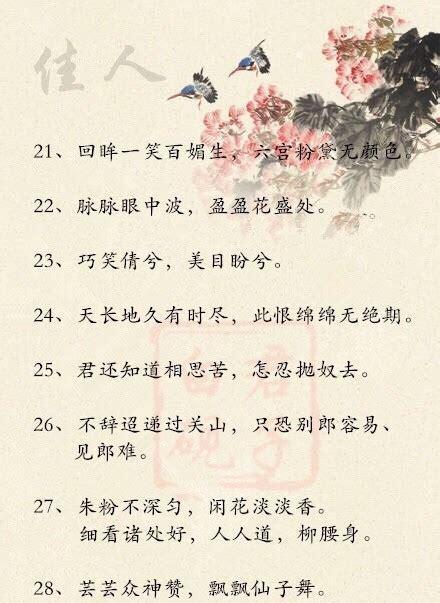 佳人
21、回眸一笑百媚生，六宫粉黛无颜色。
22、脉脉眼中波，盈盈花盛处。
23、巧笑倩兮，美目盼兮。
24、天长地久有时尽，此恨绵绵无绝期。
25、君还知道相思苦，怎忍抛奴去。
26、不辞迢递过关山，只恐别郎容易、
见郎难。
27、朱粉不深匀，闲花淡淡香。
细看诸处好，人人道，柳腰身。
28、芸芸众神赞，飘飘仙子舞。
君子
白砚